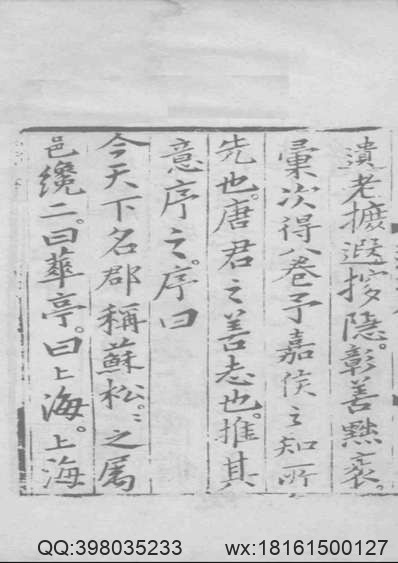 遺老摭遐搜隱。彰善黜衺。
彙次得八卷予嘉侯之知所
先也。唐君之善志也。推其
意序之。序曰
今天下名郡稱蘇松。松之属
邑纔二。曰華亭。曰上海。上海
QQ:398035233 wx:18161500127